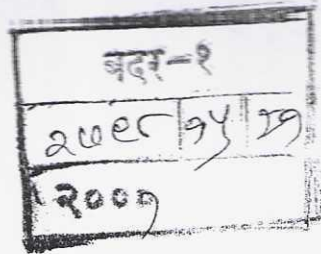 बदर-१
२७९८ १५ २१
२००१